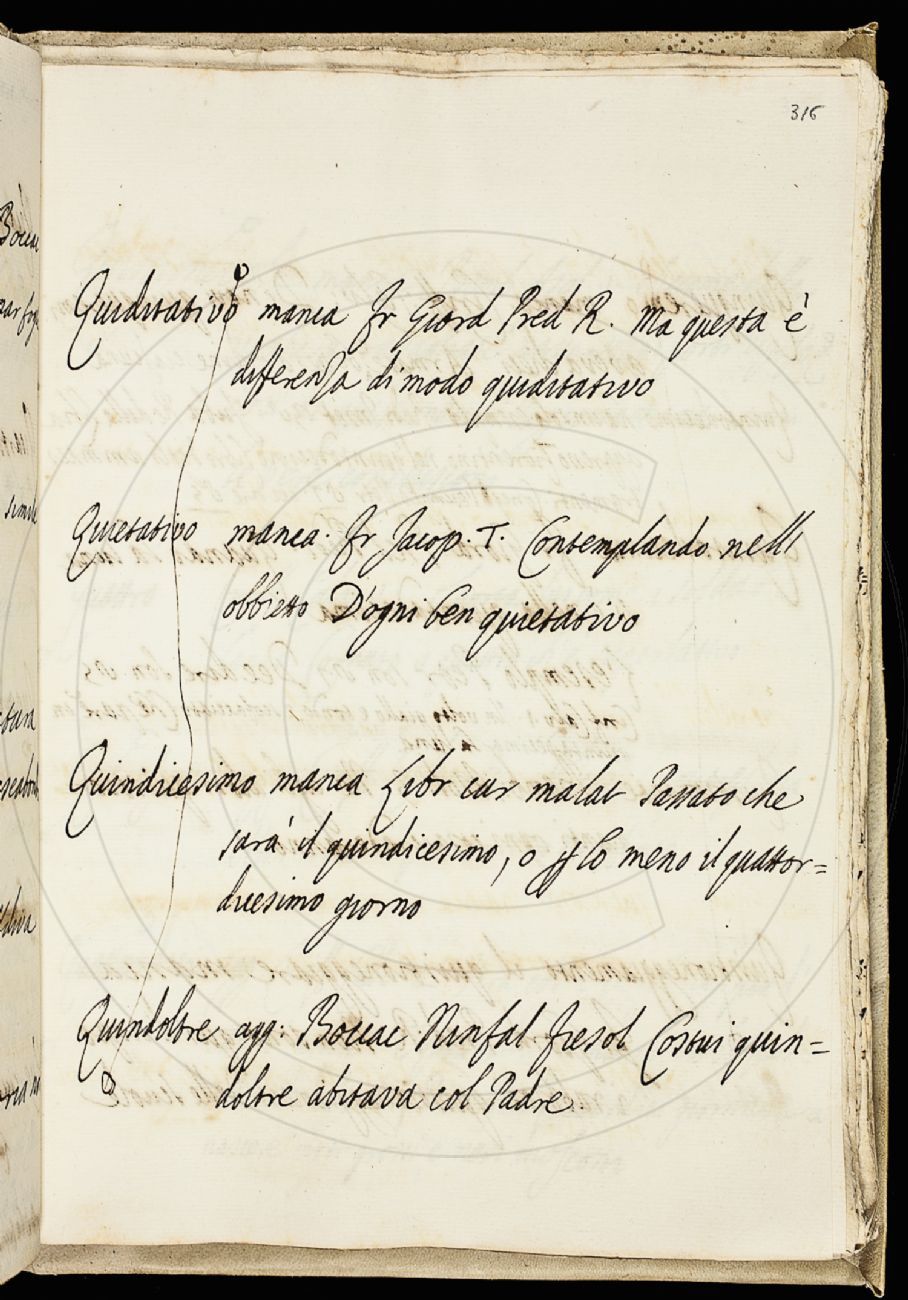 316
Quiditativo manca Fr Giord Pred R. Ma questa è
differenza di modo quiditativo
Quietativo manca. Fr Jacop. T. Contemplando nell'
obbietto D'ogni ben quietativo
Quindicesimo manca Libr cur malat Passato che
sarà il quindicesimo, o lo meno il quattor=
dicesimo giorno
Quindoltre agg: Boccac Ninfal fiesol Costui quin=
doltre abitava col Padre